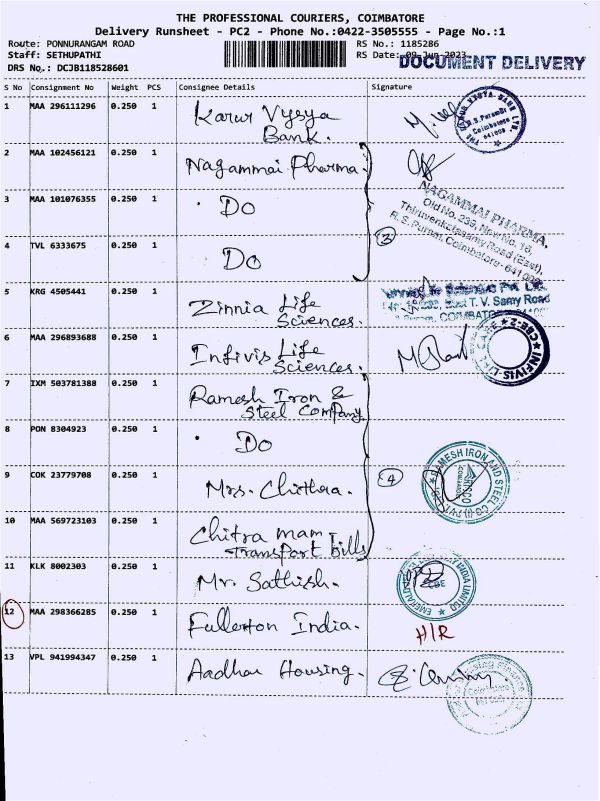 THE PROFESSIONAL COURIERS, COIMBATORE
Delivery Runsheet - PC2 - Phone No.:0422-3505555 - Page No.:1
Route: PONNURANGAM ROAD RS No.: 1185286
Staff: SETHUPATHI RS Date: 09-Jun-2023
DOCUMENT DELIVERY
DRS No.: DCJB118528601
S No Consignment No Weight PCS Consignee Details Signature
1 MAA 296111296 0.250 1 Karur Vysya
Bank.
2 MAA 102456121 0.250 1 Nagammai Pharma.
NAGAMMAI PHARMA,
Old No. 239, New No. 16,
Thiruvenkatasamy Road (East),
R. S. Puram, Coimbatore - 641 002
3 MAA 101076355 0.250 1 Do
3
4 TVL 6333675 0.250 1 Do
5 KRG 4505441 0.250 1 Zinnia Life
Sciences.
East T. V. Samy Road
6 MAA 296893688 0.250 1 Infivis Life
Sciences.
INFIVIS LIFE CARE
CBE-2
7 IXM 503781388 0.250 1 Ramesh Iron &
Steel Company
8 PON 8304923 0.250 1 Do
9 COK 23779708 0.250 1 Mrs. Chithra.
4
RAMESH IRON AND STEEL CO (I) PVT
10 MAA 569723103 0.250 1 Chitra mam -
Transport bills
11 KLK 8002303 0.250 1 Mr. Sathish.
INDIA LIMITED
CBE
12 MAA 298366285 0.250 1 Fullerton India.
H/R
13 VPL 941994347 0.250 1 Aadhar Housing.
Housing Finance
Coimbatore